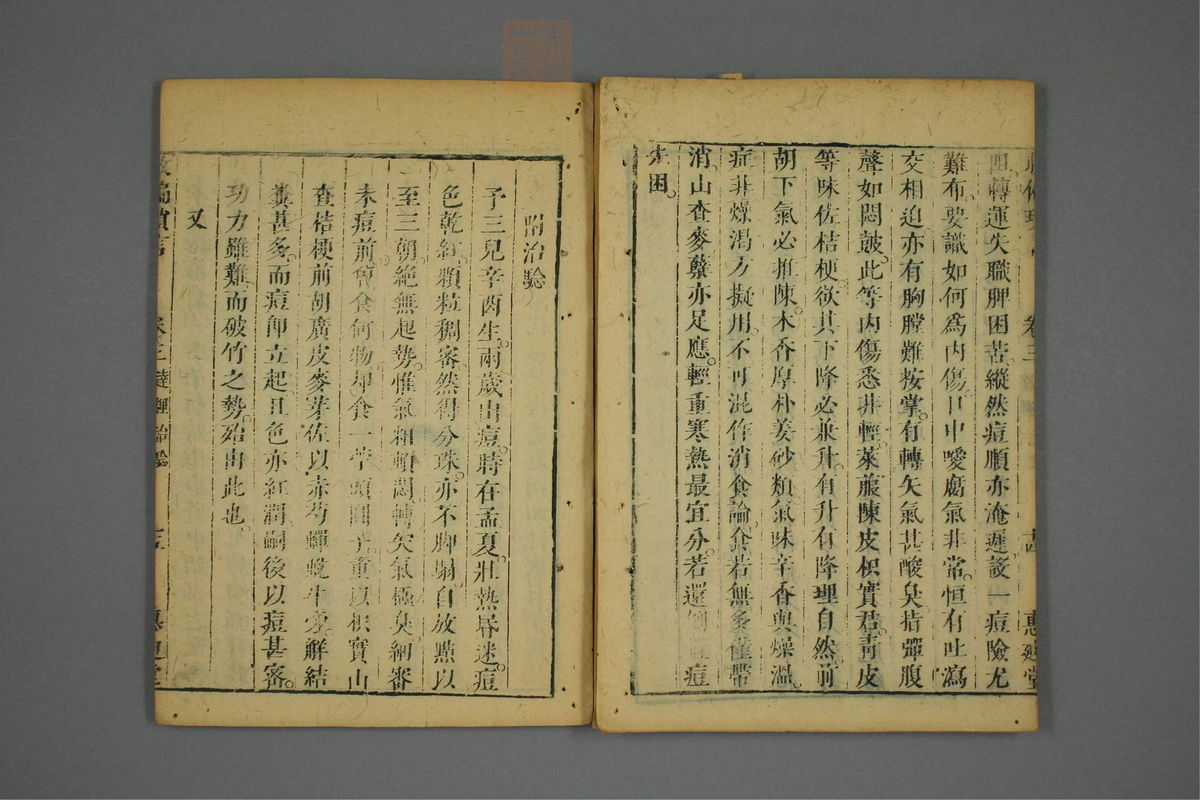 轉運失職脾困苦縱然痘順亦淹遲設一痘險尤
難布要識如何為內傷口中噯腐氣非常恒有吐瀉
交相迫亦有胸膛難按掌有轉矢氣甚酸臭拮彈腹
聲如悶皷此等內傷悉非輕萊菔陳皮枳實君青皮
等味佐桔梗欲其下降必兼升有升有降理自然前
胡下氣必推陳木香厚朴姜砂類氣味辛香與燥溫
症非燥渴方擬用不可混作消食論食若無多僅帶
消山查麥櫱亦足應輕重寒熱最宜分若還 痘
先困
卷三
惠迪堂
附治驗
予三兒辛酉生兩歲出痘時在孟夏壯熱昏迷痘
色乾紅顆粒稠密然得分珠亦不脚塌自放點以
至三朝絕無起勢惟氣粗頓悶轉矢氣極臭細審
未痘前曾食何物却食一芋頭團 重以枳實山
查桔梗前胡廣皮麥芽佐以赤芍蟬蛻牛蒡解結
糞甚多而痘即立起且色亦紅潤嗣後以痘甚密
功力雖難而破竹之勢殆由此也
又
卷三 治驗
惠迪堂